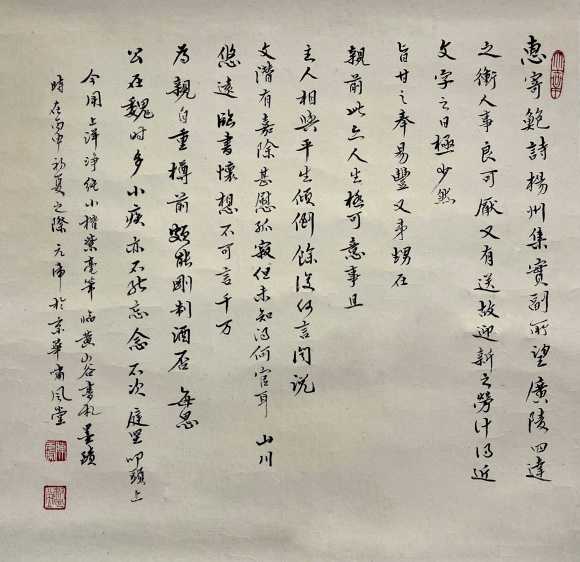 惠寄鲍詩揚州集實副所望廣陵四達
之衝人事良可厭又有送故迎新之勞計日近
文字之日極少然
旨甘之奉易豐又弟甥在
親前此亦人生極可意事且
主人相與平生傾倒餘復何言聞說
文潛有嘉除甚慰孤寂但未知得何官耳 山川
悠遠臨書懷想不可言千万
為親自重樽前頗能剛制酒否 每思
公在魏時多小疾亦不能忘念 不次 庭堅叩頭上
今用上洋淨純小楷紫毫筆 臨黄山谷書札墨蹟
時在丙申初夏之際 元沛 於京華肅風堂